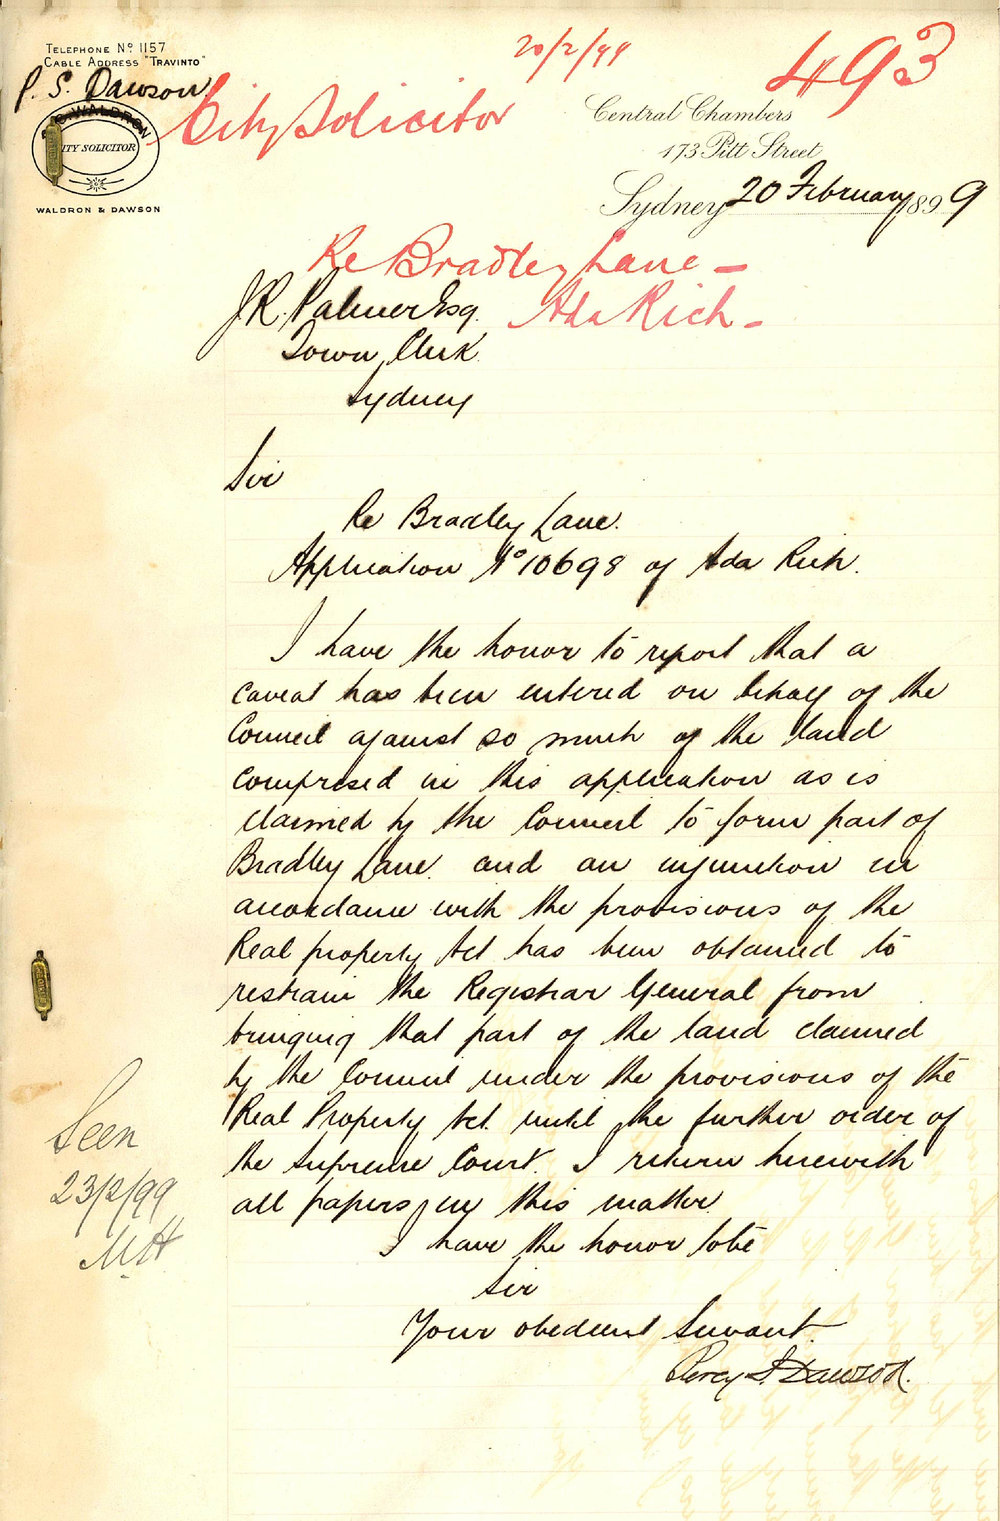 Telephone No. 1157
Cable Address "Travinto"
P. S. Dawson
WALDRON
CITY SOLICITOR
WALDRON & DAWSON
20/2/99
493
City Solicitor
Central Chambers
173 Pitt Street
Sydney 20 February 1899
Re Bradley Lane –
Ada Rich –
J.R. Palmer Esq.
Town Clerk
Sydney
Sir
Re Bradley Lane.
Application No 10698 of Ada Rich.
I have the honor to report that a
caveat has been entered on behalf of the
Council against so much of the land
comprised in this application as is
claimed by the Council to form part of
Bradley Lane. and an injunction in
accordance with the provisions of the
Real property Act has been obtained to
restrain the Registrar General from
bringing that part of the land claimed
by the Council under the provisions of the
Real Property Act until the further order of
the Supreme Court. I return herewith
all papers in this matter.
I have the honor to be
Sir
Your obedient Servant.
Percy S. Dawson.
Seen
23/2/99